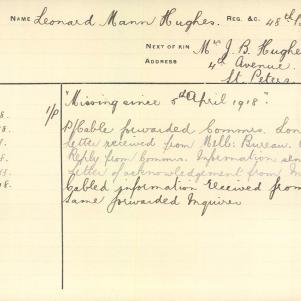 NAME Leonard Mann Hughes. REG. &C. 48th B
NEXT OF KIN Mrs J. B. Hughe
ADDRESS 4th Avenue.
St. Peters
"Missing since 5th April 1918".
8. 1/P P/Cable forwarded Commrs. Lon
Letter received from Melb: Bureau.
Reply from Commrs. Information
Letter of acknowledgement from
8. Cabled information received from
same forwarded Inquirer